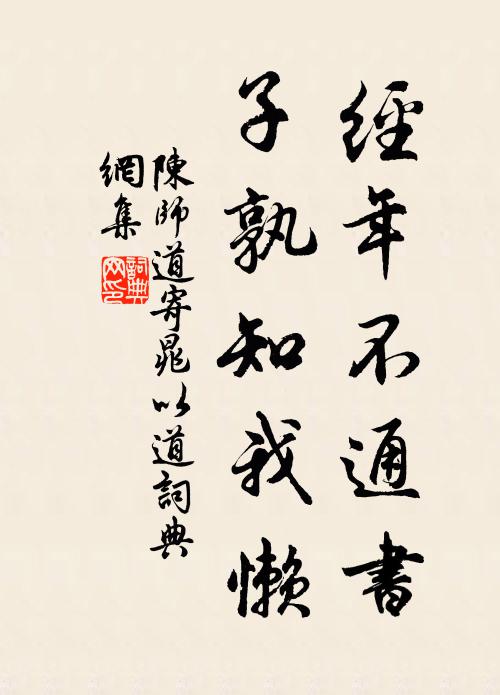 經年不通書
子孰知我懶
陳師道寄晁以道詞典
網集
詞典
网印